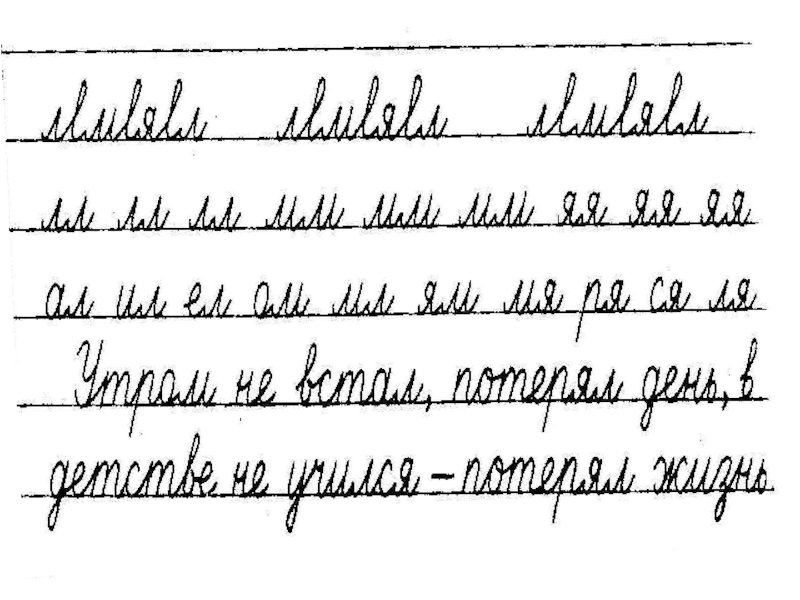 лл лл лл мм мм мм яя яя яя
ал ил ел ом мл ям мя ря ся ля
Утром не встал, потерял день, в
детстве не учился – потерял жизнь